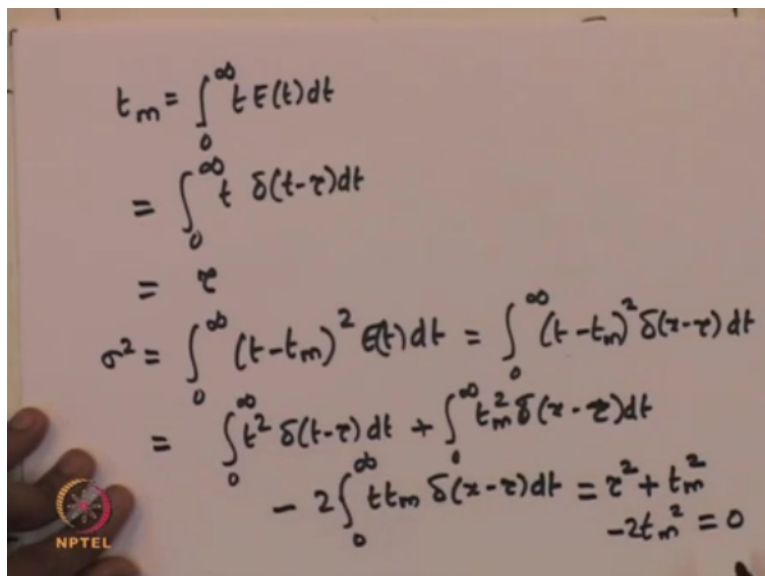 t_m = ∫_0^∞ t E(t) dt
= ∫_0^∞ t δ(t-τ) dt
= τ
σ² = ∫_0^∞ (t-t_m)² E(t) dt = ∫_0^∞ (t-t_m)² δ(x-τ) dt
= ∫_0^∞ t² δ(t-τ) dt + ∫_0^∞ t_m² δ(x-τ) dt
- 2∫_0^∞ t t_m δ(x-τ) dt = τ² + t_m²
-2t_m² = 0
NPTEL